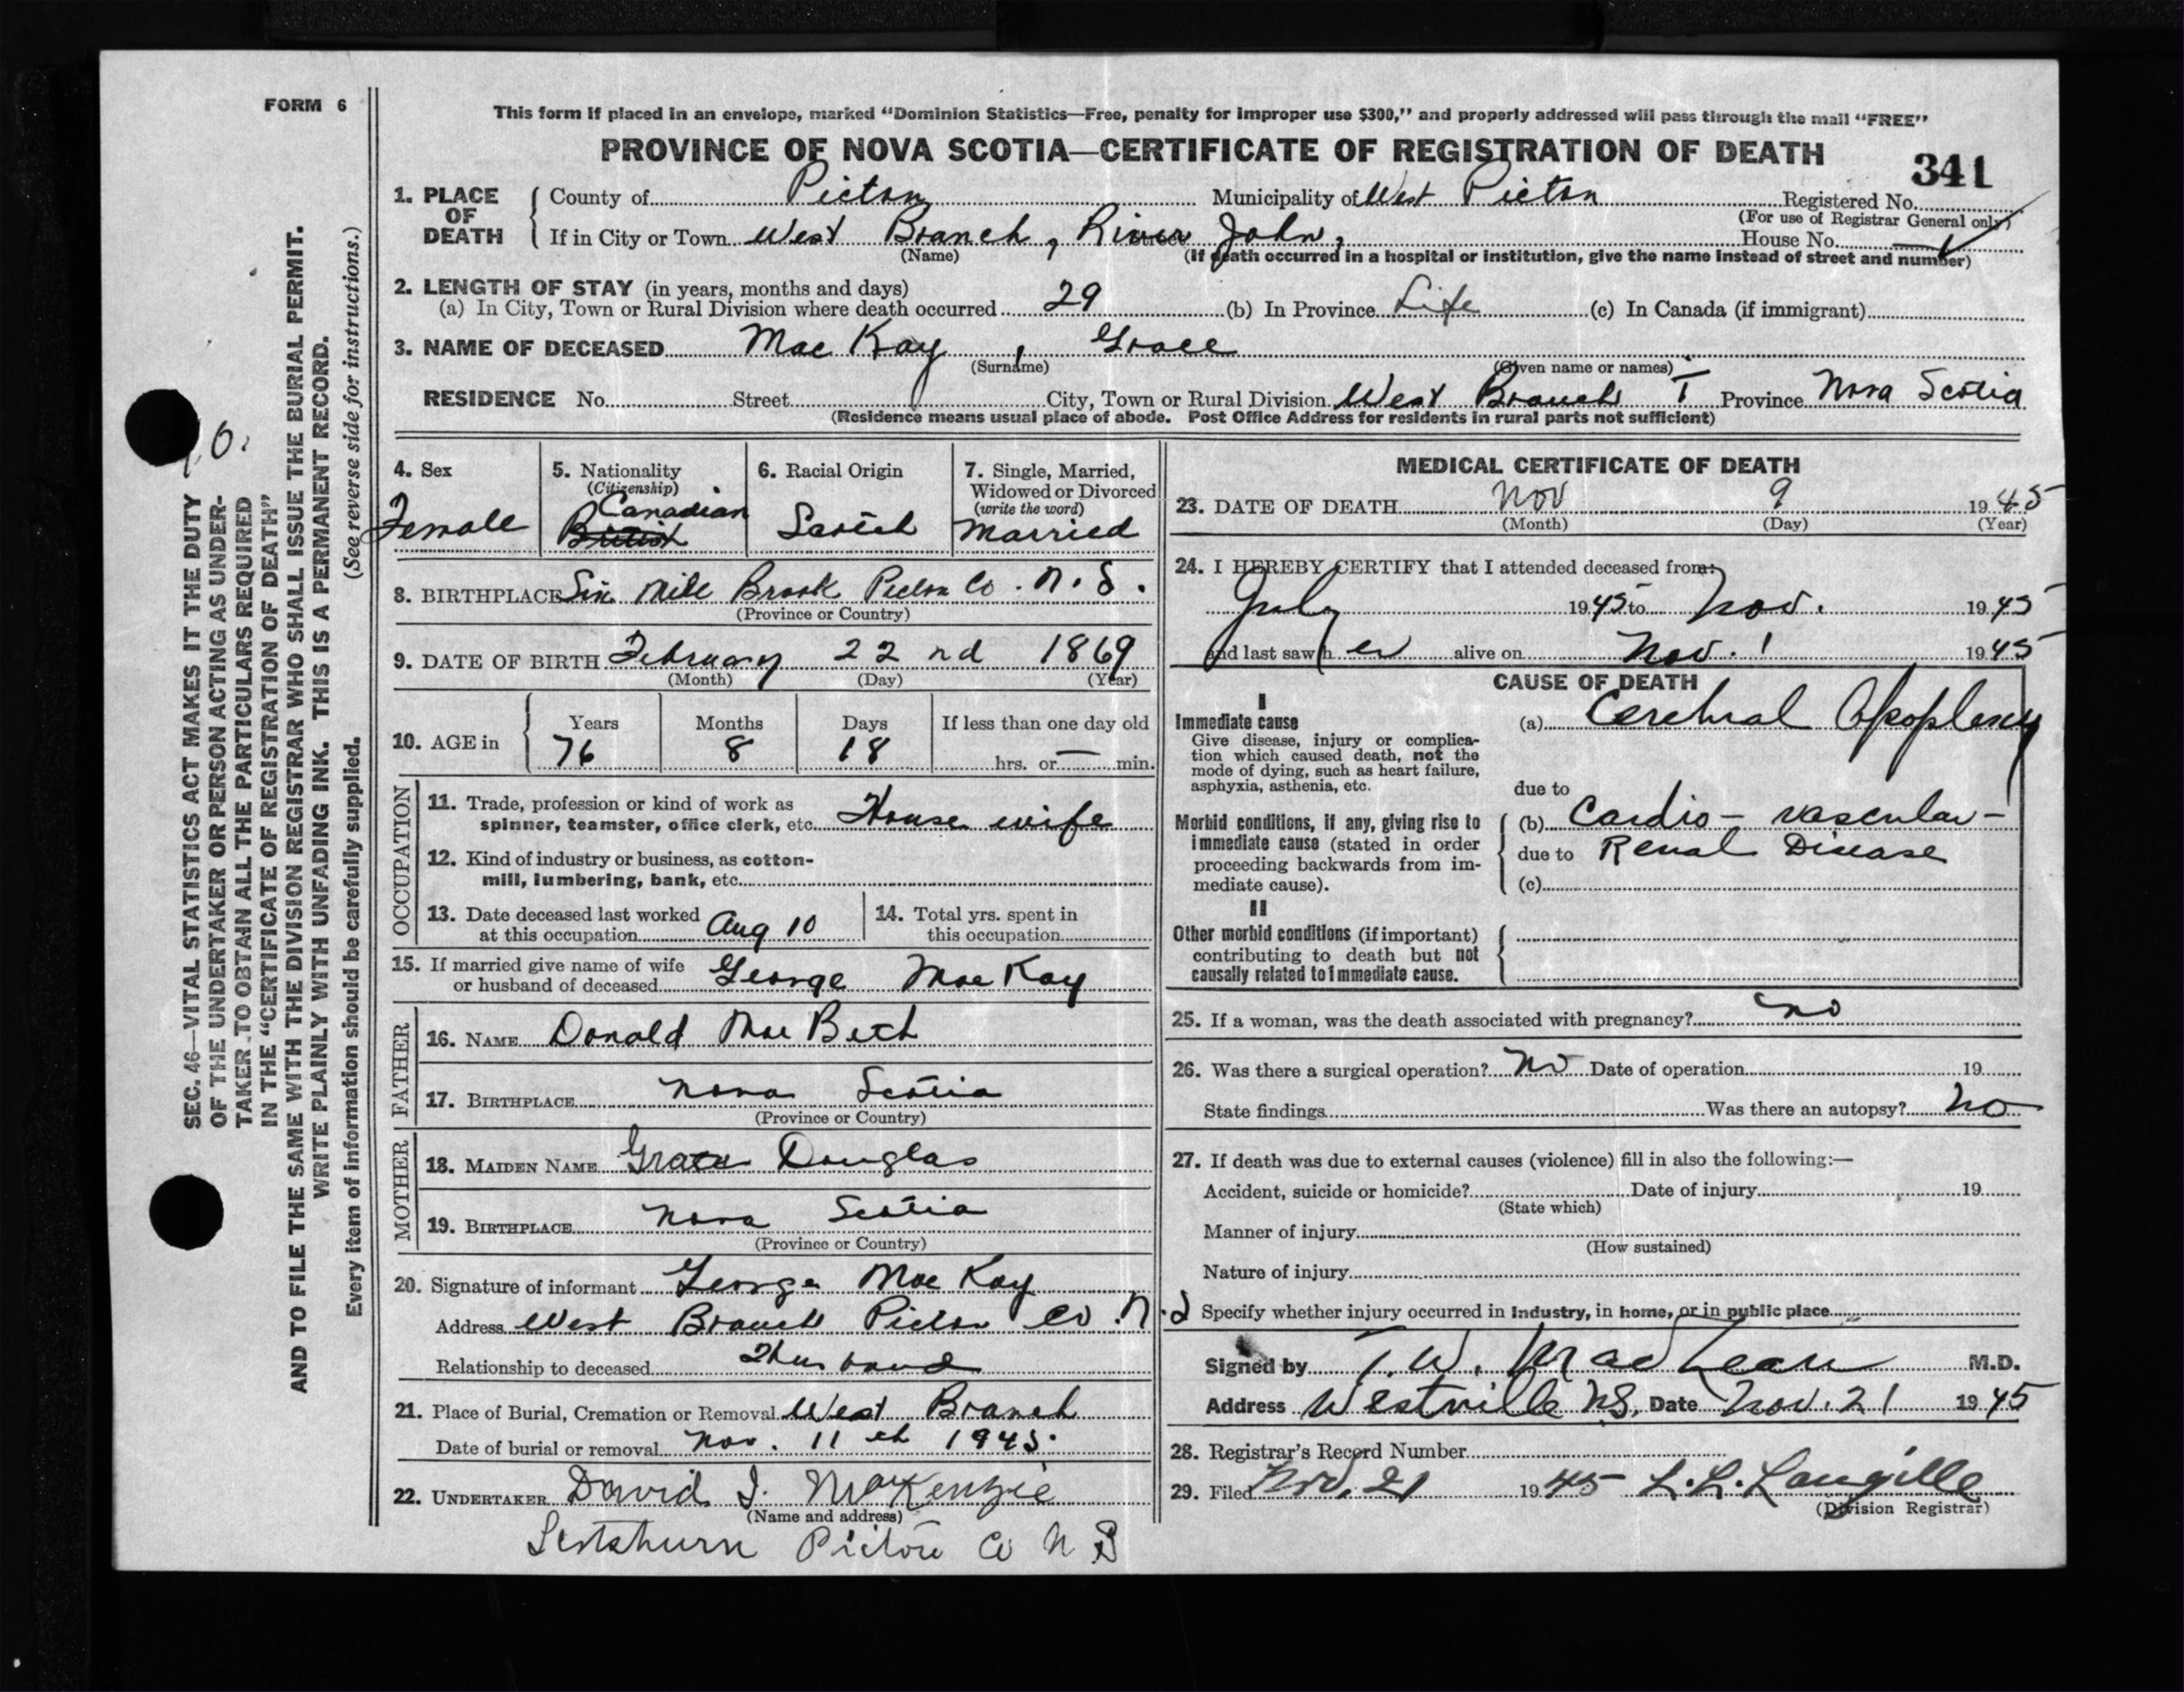 FORM 6
This form if placed in an envelope, marked "Dominion Statistics—Free, penalty for improper use $300," and properly addressed will pass through the mail "FREE"
PROVINCE OF NOVA SCOTIA—CERTIFICATE OF REGISTRATION OF DEATH
341
1. PLACE OF DEATH
County of Pictou Municipality of West Pictou Registered No.
(For use of Registrar General only)
If in City or Town West Branch, River John, House No. —
(Name) (If death occurred in a hospital or institution, give the name instead of street and number)
2. LENGTH OF STAY (in years, months and days)
(a) In City, Town or Rural Division where death occurred 29 (b) In Province Life (c) In Canada (if immigrant)
3. NAME OF DECEASED Mac Kay, Grace
(Surname) (Given name or names)
RESIDENCE No. Street City, Town or Rural Division West Branch T Province Nova Scotia
(Residence means usual place of abode. Post Office Address for residents in rural parts not sufficient)
4. Sex
Female
5. Nationality
(Citizenship)
Canadian
British
6. Racial Origin
Scotch
7. Single, Married,
Widowed or Divorced
(write the word)
Married
8. BIRTHPLACE Six Mile Brook Pictou Co. N.S.
(Province or Country)
9. DATE OF BIRTH February 22nd 1869
(Month) (Day) (Year)
10. AGE in
Years Months Days If less than one day old
76 8 18 hrs. or — min.
OCCUPATION
11. Trade, profession or kind of work as
spinner, teamster, office clerk, etc. House wife
12. Kind of industry or business, as cotton-
mill, lumbering, bank, etc.
13. Date deceased last worked
at this occupation Aug 10
14. Total yrs. spent in
this occupation
15. If married give name of wife
or husband of deceased George MacKay
FATHER
16. NAME Donald MacBeth
17. BIRTHPLACE Nova Scotia
(Province or Country)
MOTHER
18. MAIDEN NAME Grace Douglas
19. BIRTHPLACE Nova Scotia
(Province or Country)
20. Signature of informant George MacKay
Address West Branch Pictou Co. N.S
Relationship to deceased Husband
21. Place of Burial, Cremation or Removal West Branch
Date of burial or removal Nov. 11th 1945.
22. UNDERTAKER David J. MacKenzie
(Name and address)
Scotsburn Pictou Co N S
MEDICAL CERTIFICATE OF DEATH
23. DATE OF DEATH Nov 9 1945
(Month) (Day) (Year)
24. I HEREBY CERTIFY that I attended deceased from:
July 1945 to Nov. 1945
and last saw her alive on Nov. 1 1945
CAUSE OF DEATH
I
Immediate cause
Give disease, injury or complica-
tion which caused death, not the
mode of dying, such as heart failure,
asphyxia, asthenia, etc.
(a) Cerebral Apoplexy
due to
Morbid conditions, if any, giving rise to
immediate cause (stated in order
proceeding backwards from im-
mediate cause).
(b) Cardio-vascular-
due to Renal Disease
(c)
II
Other morbid conditions (if important)
contributing to death but not
causally related to immediate cause.
25. If a woman, was the death associated with pregnancy? no
26. Was there a surgical operation? No Date of operation 19
State findings Was there an autopsy? No
27. If death was due to external causes (violence) fill in also the following:—
Accident, suicide or homicide? Date of injury 19
(State which)
Manner of injury
(How sustained)
Nature of injury
Specify whether injury occurred in industry, in home, or in public place
Signed by T. W. MacLean M.D.
Address Westville N.S. Date Nov. 21 1945
28. Registrar's Record Number
29. Filed Nov. 21 1945 L. L. Langille
(Division Registrar)
SEC. 46—VITAL STATISTICS ACT MAKES IT THE DUTY
OF THE UNDERTAKER OR PERSON ACTING AS UNDER-
TAKER TO OBTAIN ALL THE PARTICULARS REQUIRED
IN THE "CERTIFICATE OF REGISTRATION OF DEATH"
AND TO FILE THE SAME WITH THE DIVISION REGISTRAR WHO SHALL ISSUE THE BURIAL PERMIT.
WRITE PLAINLY WITH UNFADING INK. THIS IS A PERMANENT RECORD.
Every item of information should be carefully supplied. (See reverse side for instructions.)